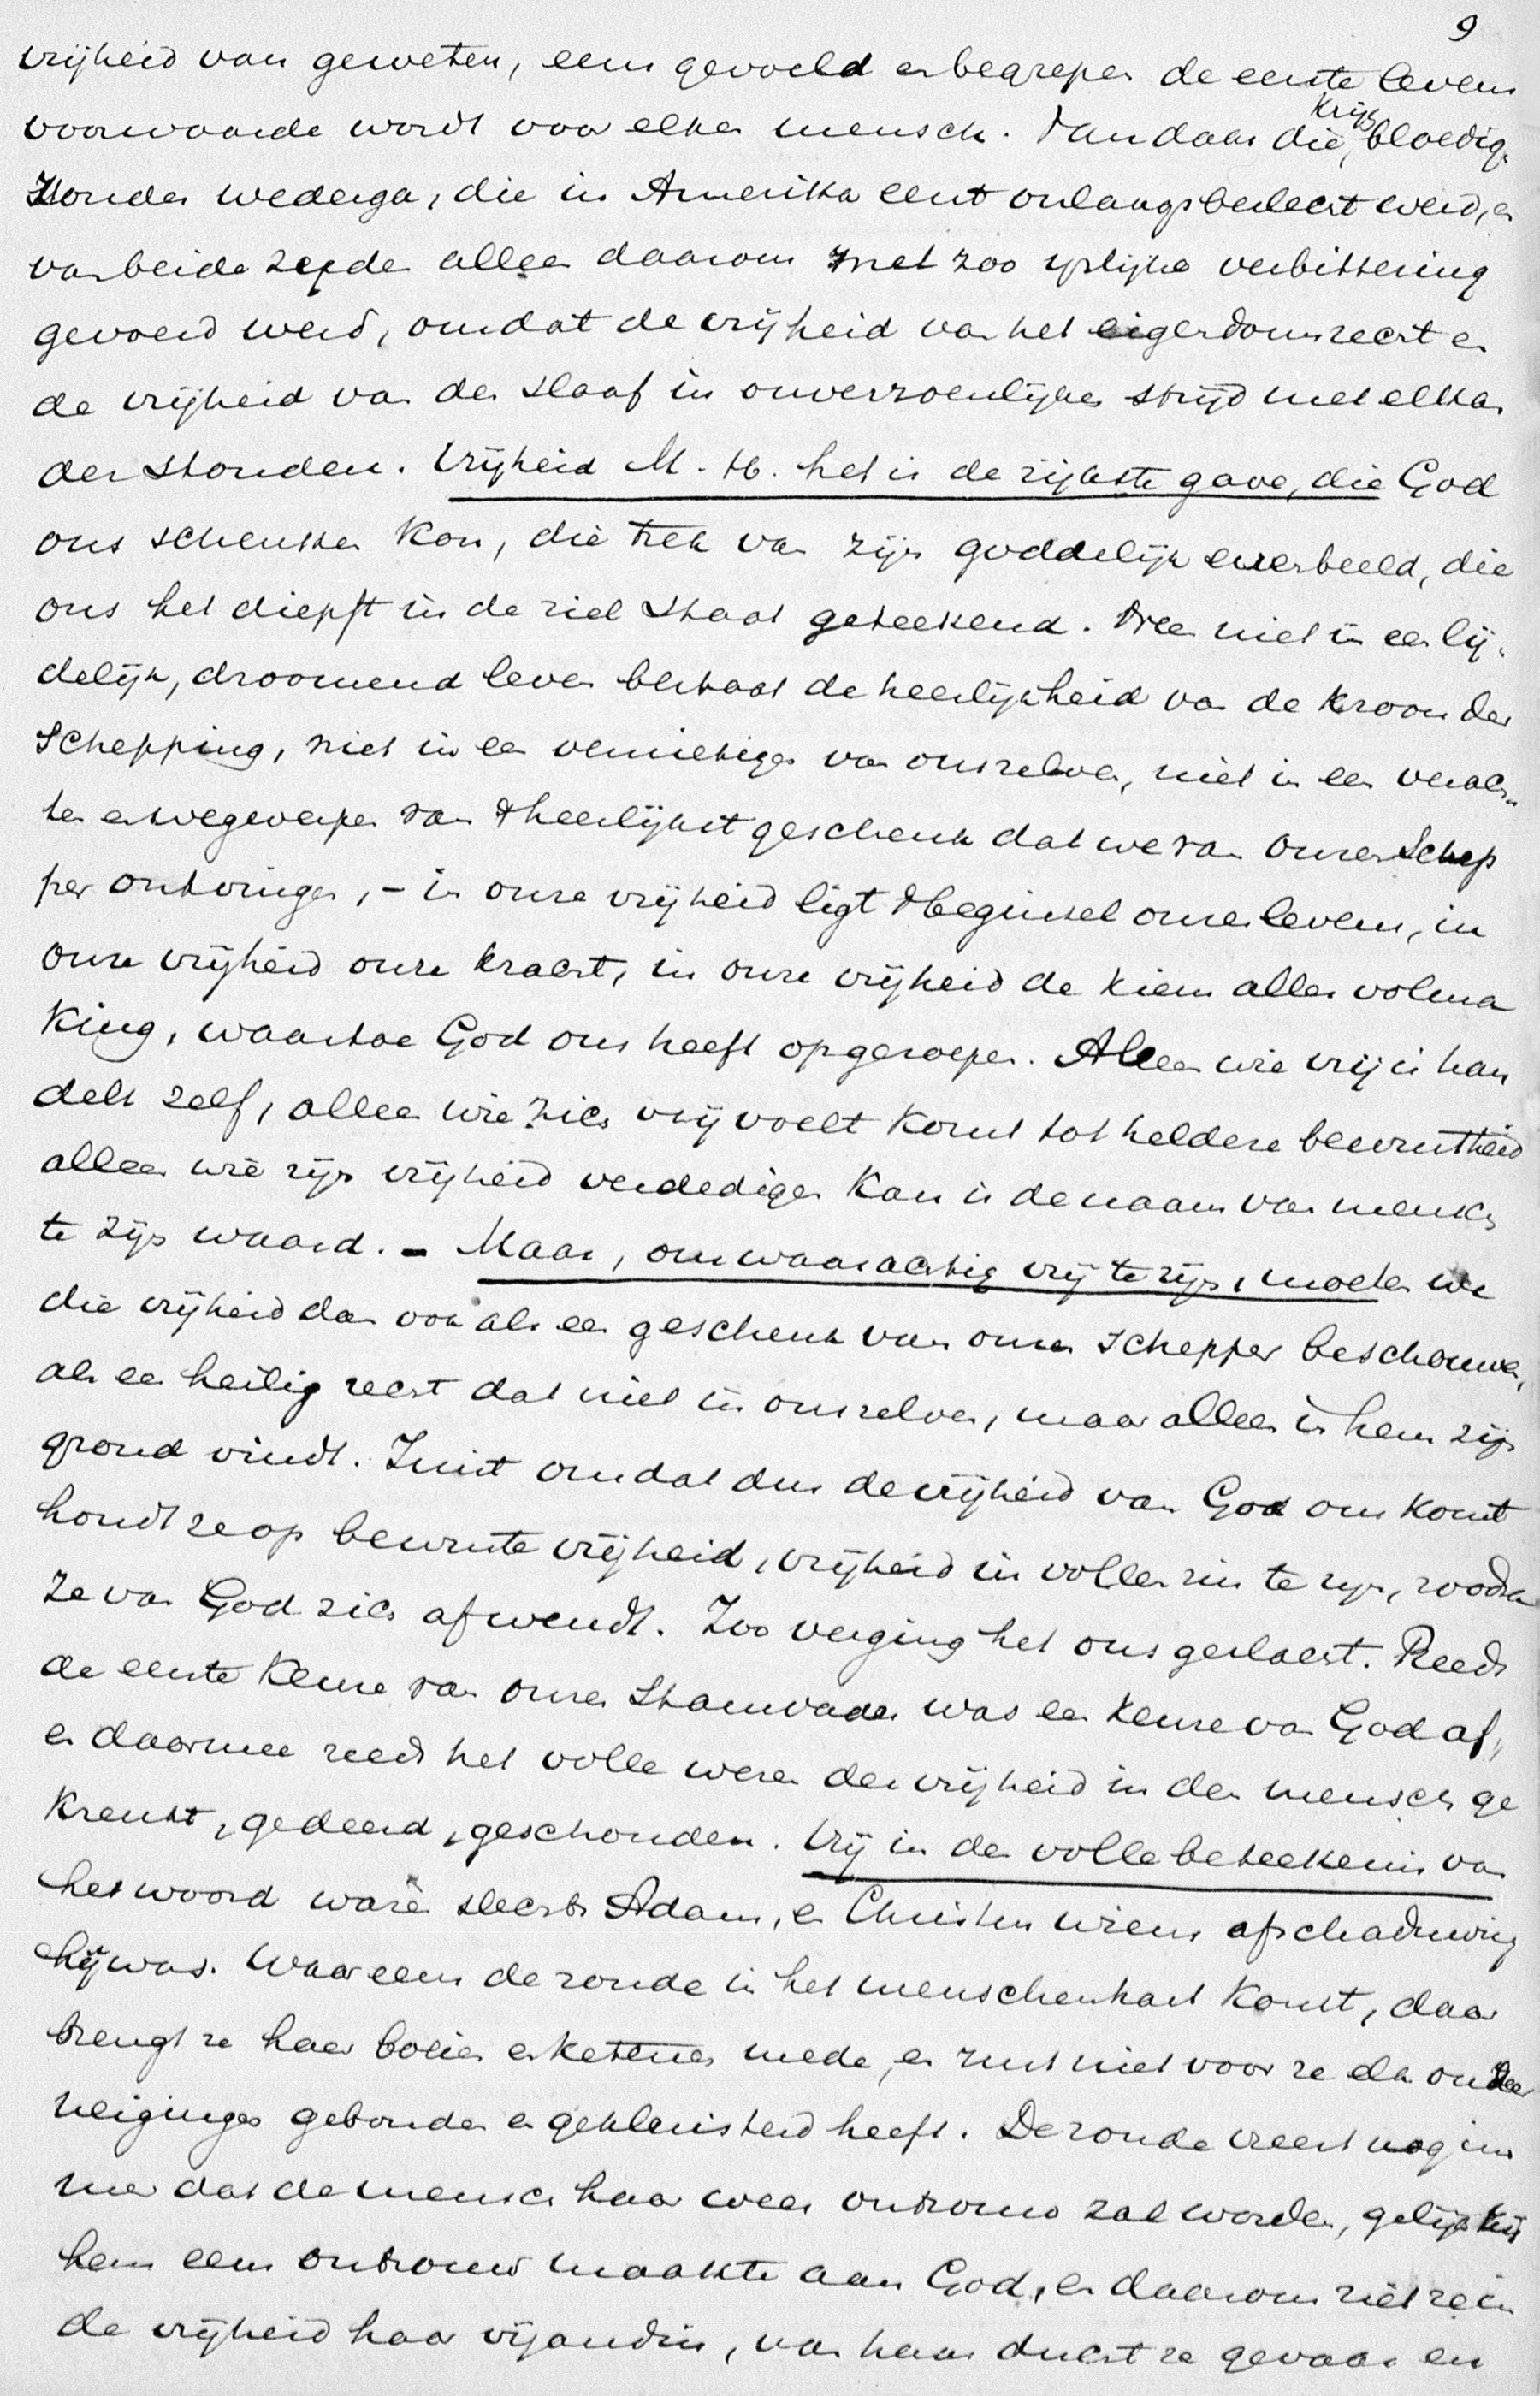 9
vrijheid van geweten, eens gevoeld en begrepen de eerste levens
voorwaarde wordt voor elken mensch. Van daar die krijg, bloedig
zonder wederga, die in Amerika eerst onlangs beslecht werd, en
van beide zijden alleen daarom met zoo ijslijke verbittering
gevoerd werd, omdat de vrijheid van het eigendomsrecht en
de vrijheid van den slaaf in onverzoenlijken strijd met elkan
der stonden. Vrijheid M. H. het is de rijkste gave, die God
ons schenken kon, die trek van zijn goddelijk evenbeeld, die
ons het diepst in de ziel staat geteekend. Neen niet in een lij-
delijk, droomend leven bestaat de heerlijkheid van de kroon der
Schepping, niet in een vernietigen van onszelven, niet in een verach-
ten en wegwerpen van 't heerlijkst geschenk dat we van onzen Schep
per ontvingen, – in onze vrijheid ligt 't beginsel onzes levens, in
onze vrijheid onze kracht, in onze vrijheid de kiem aller volma
king, waartoe God ons heeft opgeroepen. Alleen wie vrij is han
delt zelf, alleen wie zich vrij voelt komt tot heldere bewustheid
alleen wie zijn vrijheid verdedigen kan is de naam van mensch
te zijn waard. – Maar, om waarachtig vrij te zijn, moeten we
die vrijheid dan ook als een geschenk van onzen Schepper beschouwen,
als een heilig recht dat niet in onszelven, maar alleen in hem zijn
grond vindt. Juist omdat dus de vrijheid van God ons komt
houdt ze op bewuste vrijheid, vrijheid in vollen zin te zijn, zoodra
ze van God zich afwendt. Zoo verging het ons geslacht. Reeds
de eerste keuze van onzen Stamvader was een keuze van God af,
en daarmee reeds het volle wezen der vrijheid in den mensch ge
krenkt, gedeerd, geschonden. Vrij in de volle beteekenis van
het woord waren slechts Adam, en Christus wiens afschaduwing
hij was. Waar eens de zonde in het menschenhart komt, daar
brengt ze haar boeien en ketenen mede, en rust niet voor ze elk onzer
neigingen gebonden en gekluisterd heeft. De zonde vreest nog im
mer dat de mensch haar weer ontrouw zal worden, gelijk zij
hem eens ontrouw maakte aan God, en daarom ziet ze in
de vrijheid haar vijandin, van haar ducht ze gevaar en